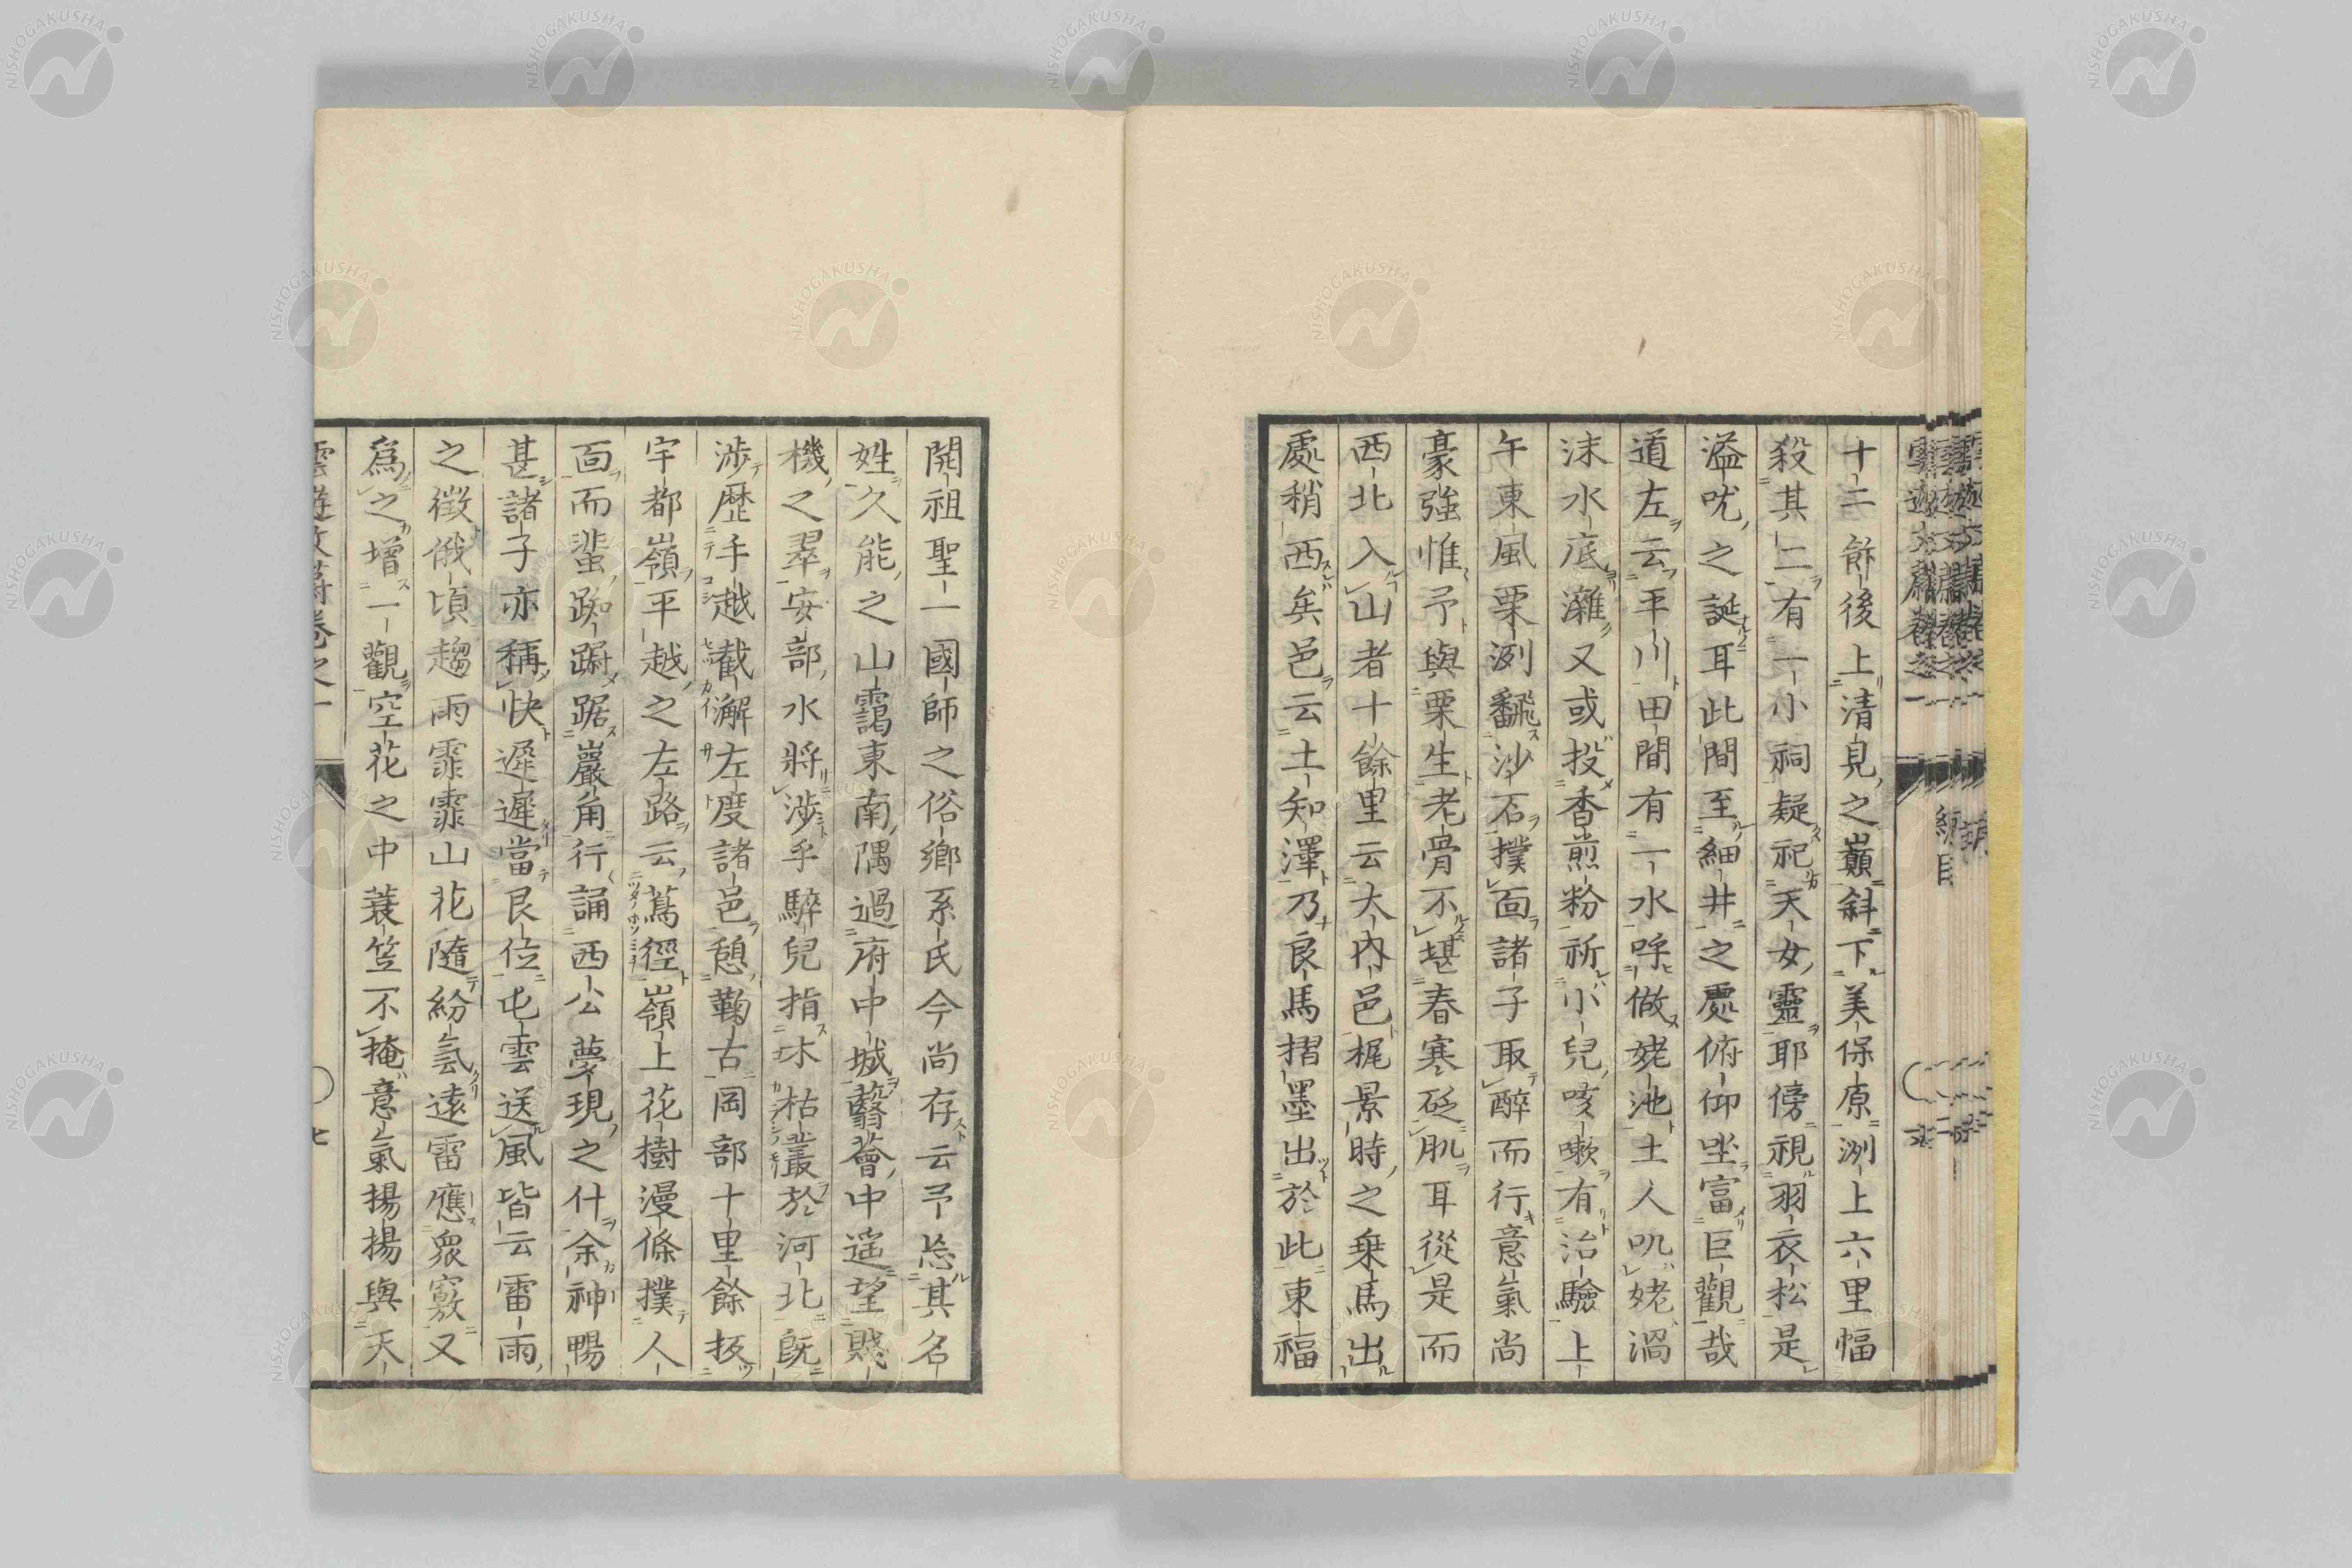 十二餙後上清見之巓斜下美保原洌上六里幅
殺其二有一小祠疑祀天女靈耶傍視羽衣松是
溢吮之誕耳此間至細井之處俯仰坐富巨觀哉
道左云平川田間有一水呼做姥池土人叽姥渦
沫水底灘又或投香煎粉祈小兒咳嗽有治驗上
午東風栗洌飜沙石撲面諸子取醉而行意氣尚
豪強惟予與栗生老骨不堪春寒砭肌耳從是而
西北入山者十餘里云大内邑梶景時之乗馬出
處稍西矣邑云土知澤乃良馬摺墨出於此東福
開祖聖一國師之俗鄉系氏今尚存云予忘其名
姓久能之山靄東南隅過府中城翳薈中遥望賤
機之翠安部水將涉乎騂兒指木枯叢於河北既
涉歷手越截澥左度諸邑憩鞠古岡部十里餘扳
宇都嶺平越之左路云蔦徑嶺上花樹漫條撲人
面而蜚踟蹰踞巖角行誦西公夢現之什余神暢
甚諸子亦稱快遲遲當艮位屯雲送風皆云雷雨
之徵俄頃趨雨霏霏山花隨紛氳遠雷應衆竅又
爲之增一觀空花之中蓑笠不掩意氣揚揚與天